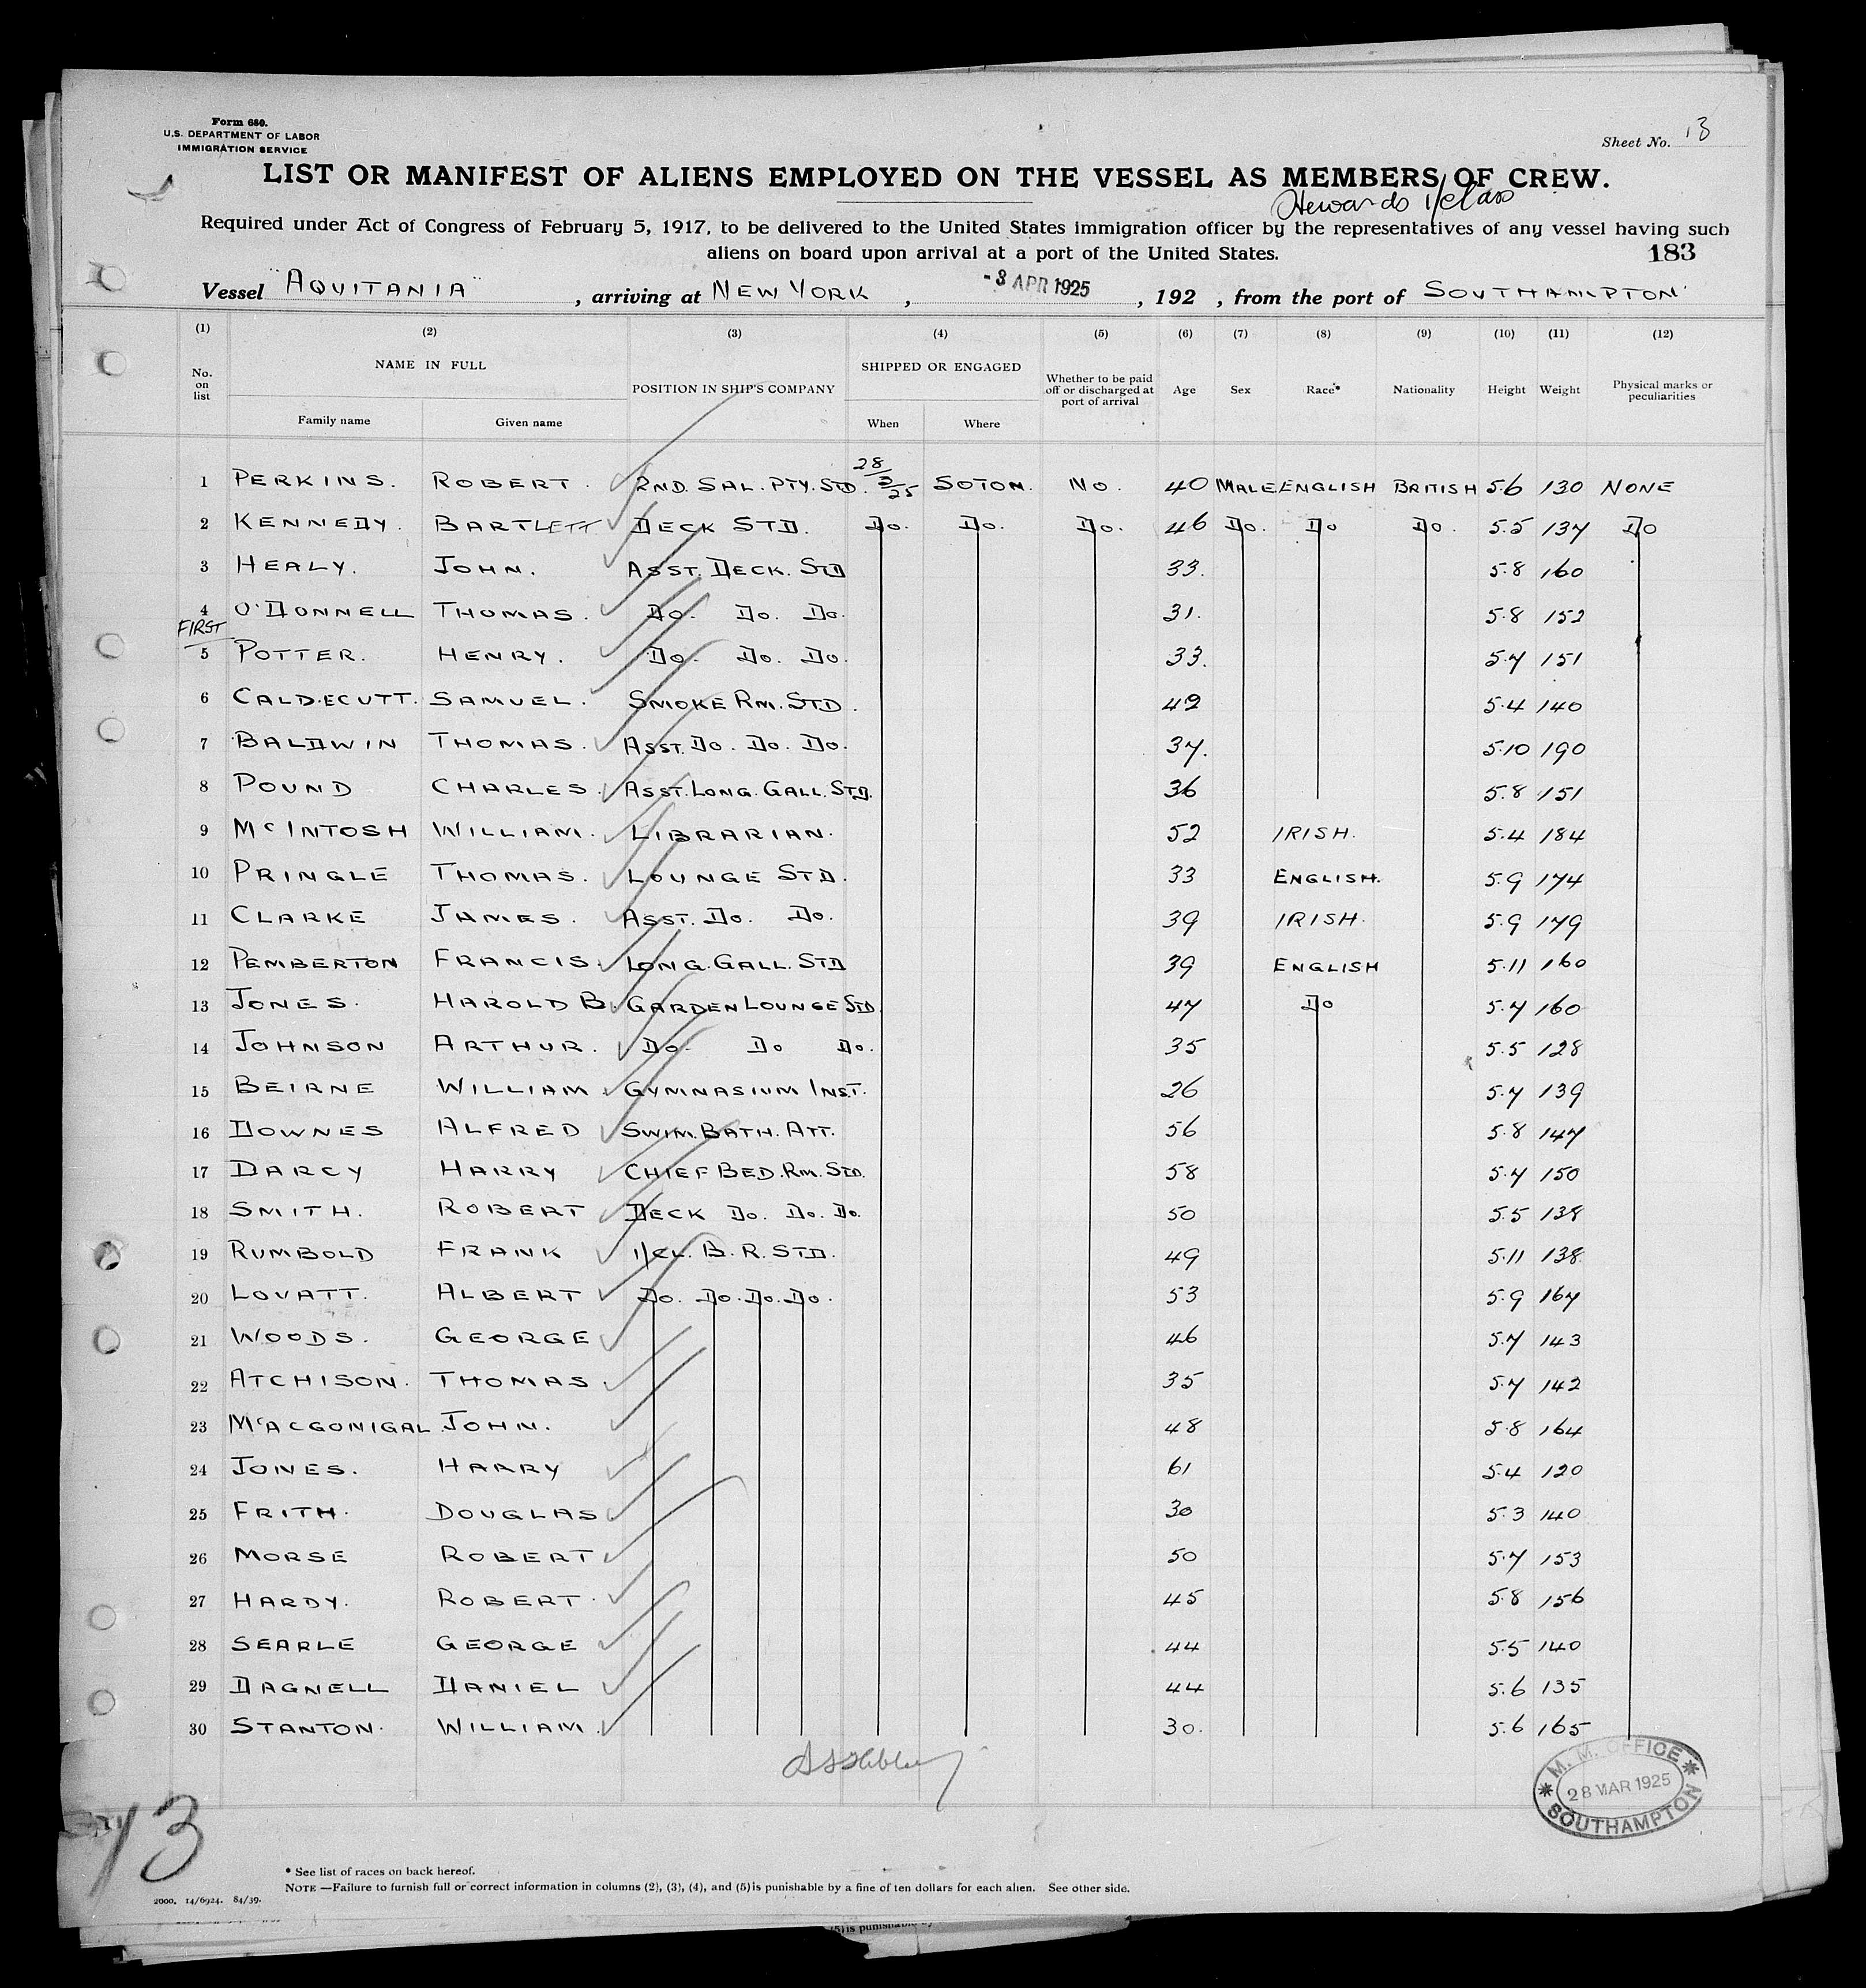 Form 680.
U.S. DEPARTMENT OF LABOR
IMMIGRATION SERVICE
Sheet No. 13
LIST OR MANIFEST OF ALIENS EMPLOYED ON THE VESSEL AS MEMBERS OF CREW.
Stewards 1/Class
Required under Act of Congress of February 5, 1917, to be delivered to the United States immigration officer by the representatives of any vessel having such
aliens on board upon arrival at a port of the United States.
183
Vessel "AQUITANIA", arriving at NEW YORK, -3 APR 1925, 192 , from the port of SOUTHAMPTON
(1) (2) (3) (4) (5) (6) (7) (8) (9) (10) (11) (12)
No. on list NAME IN FULL Family name Given name POSITION IN SHIP'S COMPANY SHIPPED OR ENGAGED When Where Whether to be paid off or discharged at port of arrival Age Sex Race* Nationality Height Weight Physical marks or peculiarities
1 PERKINS. ROBERT. 2ND. SAL. PTY. STD. 28/3/25 SOTON. NO. 40 MALE ENGLISH BRITISH 5.6 130 NONE
2 KENNEDY. BARTLETT DECK STD. DO. DO. DO. 46 DO. DO DO. 5.5 137 DO
3 HEALY. JOHN. ASST. DECK. STD 33. 5.8 160
4 O'DONNELL THOMAS. DO. DO. DO. 31. 5.8 152
FIRST
5 POTTER. HENRY. DO. DO. DO. 33. 5.7 151
6 CALDECUTT. SAMUEL. SMOKE RM. STD. 42 5.4 140
7 BALDWIN THOMAS. ASST. DO. DO. DO. 37. 5.10 190
8 POUND CHARLES. ASST. LONG. GALL. STD. 36 5.8 151
9 McINTOSH WILLIAM. LIBRARIAN. 52 IRISH. 5.4 184
10 PRINGLE THOMAS. LOUNGE STD. 33 ENGLISH. 5.9 174
11 CLARKE JAMES. ASST. DO. DO. 39 IRISH. 5.9 179
12 PEMBERTON FRANCIS. LONG. GALL. STD 39 ENGLISH 5.11 160
13 JONES. HAROLD B. GARDEN LOUNGE STD. 47 DO 5.7 160
14 JOHNSON ARTHUR. DO. DO DO. 35 5.5 128
15 BEIRNE WILLIAM. GYMNASIUM INST. 26 5.7 139
16 DOWNES ALFRED SWIM. BATH. ATT. 56 5.8 147
17 DARCY HARRY CHIEF BED. RM. STD. 58 5.7 150
18 SMITH. ROBERT DECK DO. DO. DO. 50 5.5 138
19 RUMBOLD FRANK 1/CL. B. R. STD. 49 5.11 138
20 LOVATT. ALBERT DO. DO. DO. DO. 53 5.9 167
21 WOODS. GEORGE 46 5.7 143
22 ATCHISON. THOMAS 35 5.7 142
23 McACGONIGAL. JOHN. 48 5.8 164
24 JONES. HARRY 61 5.4 120
25 FRITH. DOUGLAS 30 5.3 140
26 MORSE ROBERT 50 5.7 153
27 HARDY. ROBERT. 45 5.8 156
28 SEARLE GEORGE 44 5.5 140
29 DAGNELL DANIEL 44 5.6 135
30 STANTON. WILLIAM. 30. 5.6 165
M. M. OFFICE
28 MAR 1925
SOUTHAMPTON
13
* See list of races on back hereof.
NOTE —Failure to furnish full or correct information in columns (2), (3), (4), and (5) is punishable by a fine of ten dollars for each alien. See other side.
2000. 14/6924. 84/39.
(5) is punishable by